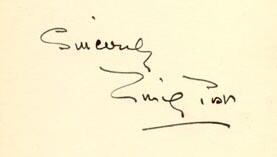 Sincerely
Emily Post